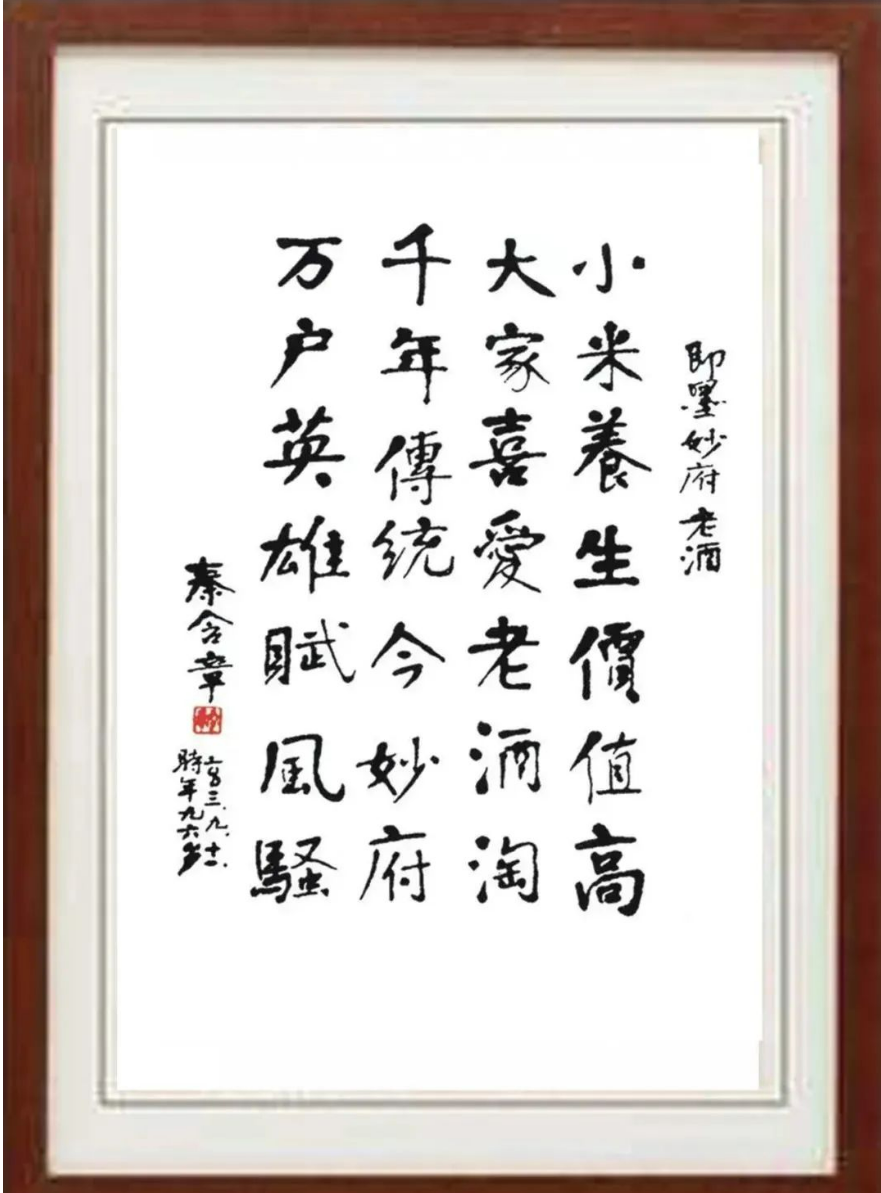 即墨妙府老酒
小米養生價值高
大家喜愛老酒淘
千年傳統今妙府
万户英雄賦風騷
秦含章
二〇〇三.九.十二.
時年九六岁